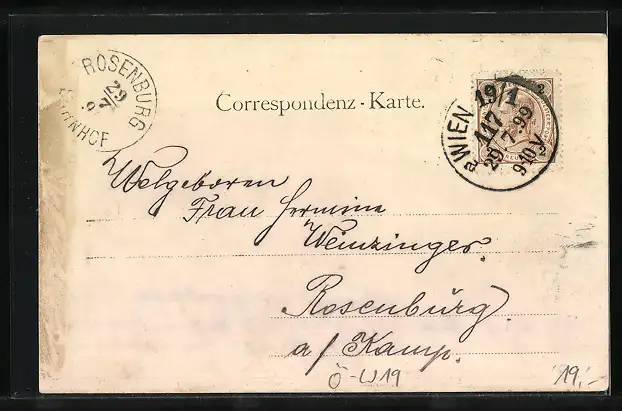 ROSENBURG
29/7
BAHNHOF
Correspondenz-Karte.
a WIEN
19/1
117
29.7.99
9.10V
2
Welgeboren
Frau Hermine
Weinzinger.
Rosenburg
a/ Kamp.
Ö-W19
19,-